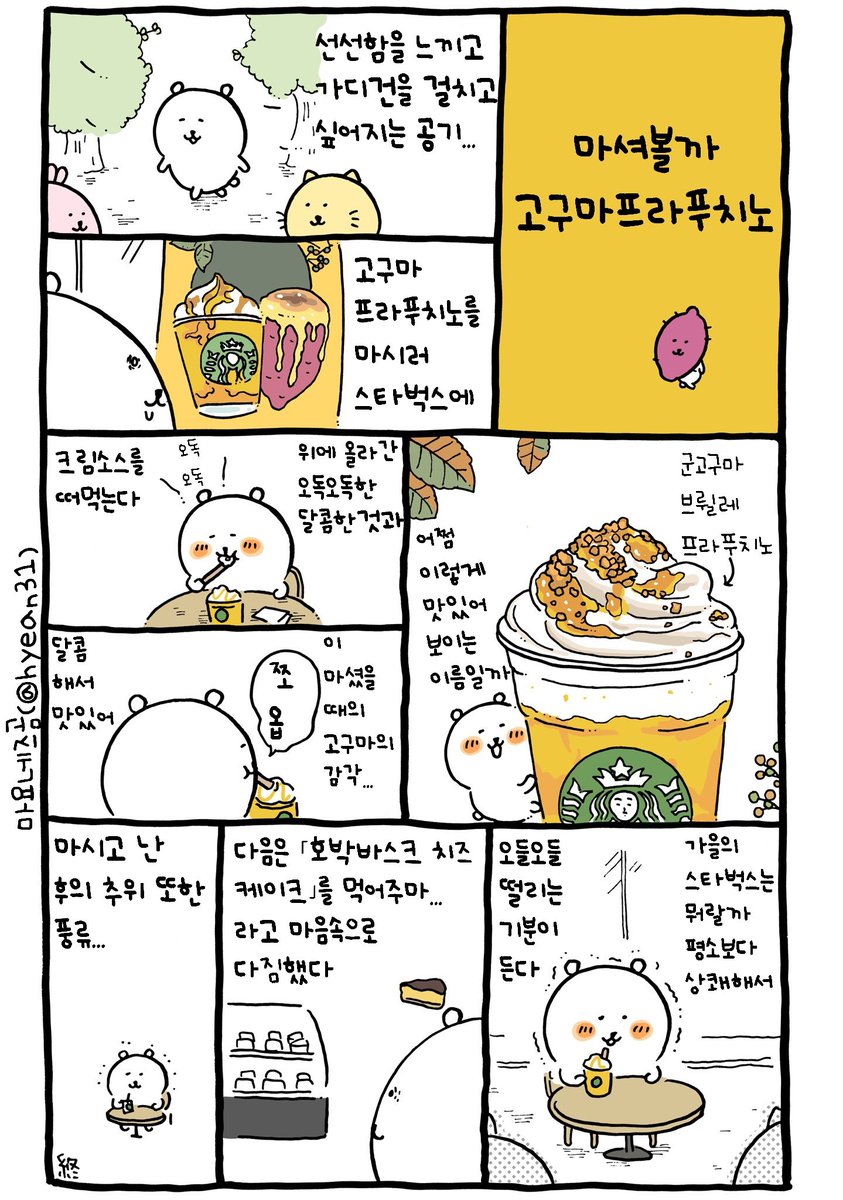 마셔볼까
고구마프라푸치노
선선함을 느끼고
가디건을 걸치고
싶어지는 공기...
고구마
프라푸치노를
마시러
스타벅스에
군고구마
브륄레
프라푸치노
어쩜
이렇게
맛있어
보이는
이름일까
위에 올라간
오독오독한
달콤한것과
오독
오독
크림소스를
떠먹는다
이
마셨을
때의
고구마의
감각...
쪼
옵
달콤
해서
맛있어
가을의
스타벅스는
뭐랄까
평소보다
상쾌해서
오들오들
떨리는
기분이
든다
다음은 「호박바스크 치즈
케이크」를 먹어주마...
라고 마음속으로
다짐했다
마시고 난
후의 추위 또한
풍류...
終
마요네즈곰(@hyean31)